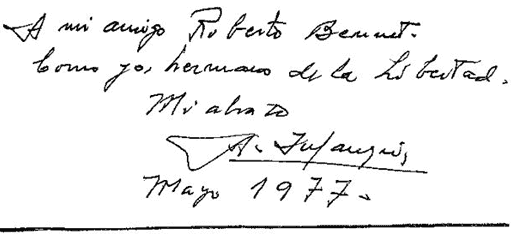 A mi amigo Roberto Bennet.
Como yo, hermano de la Libertad.
Mi abrazo
A.
Mayo 1977.